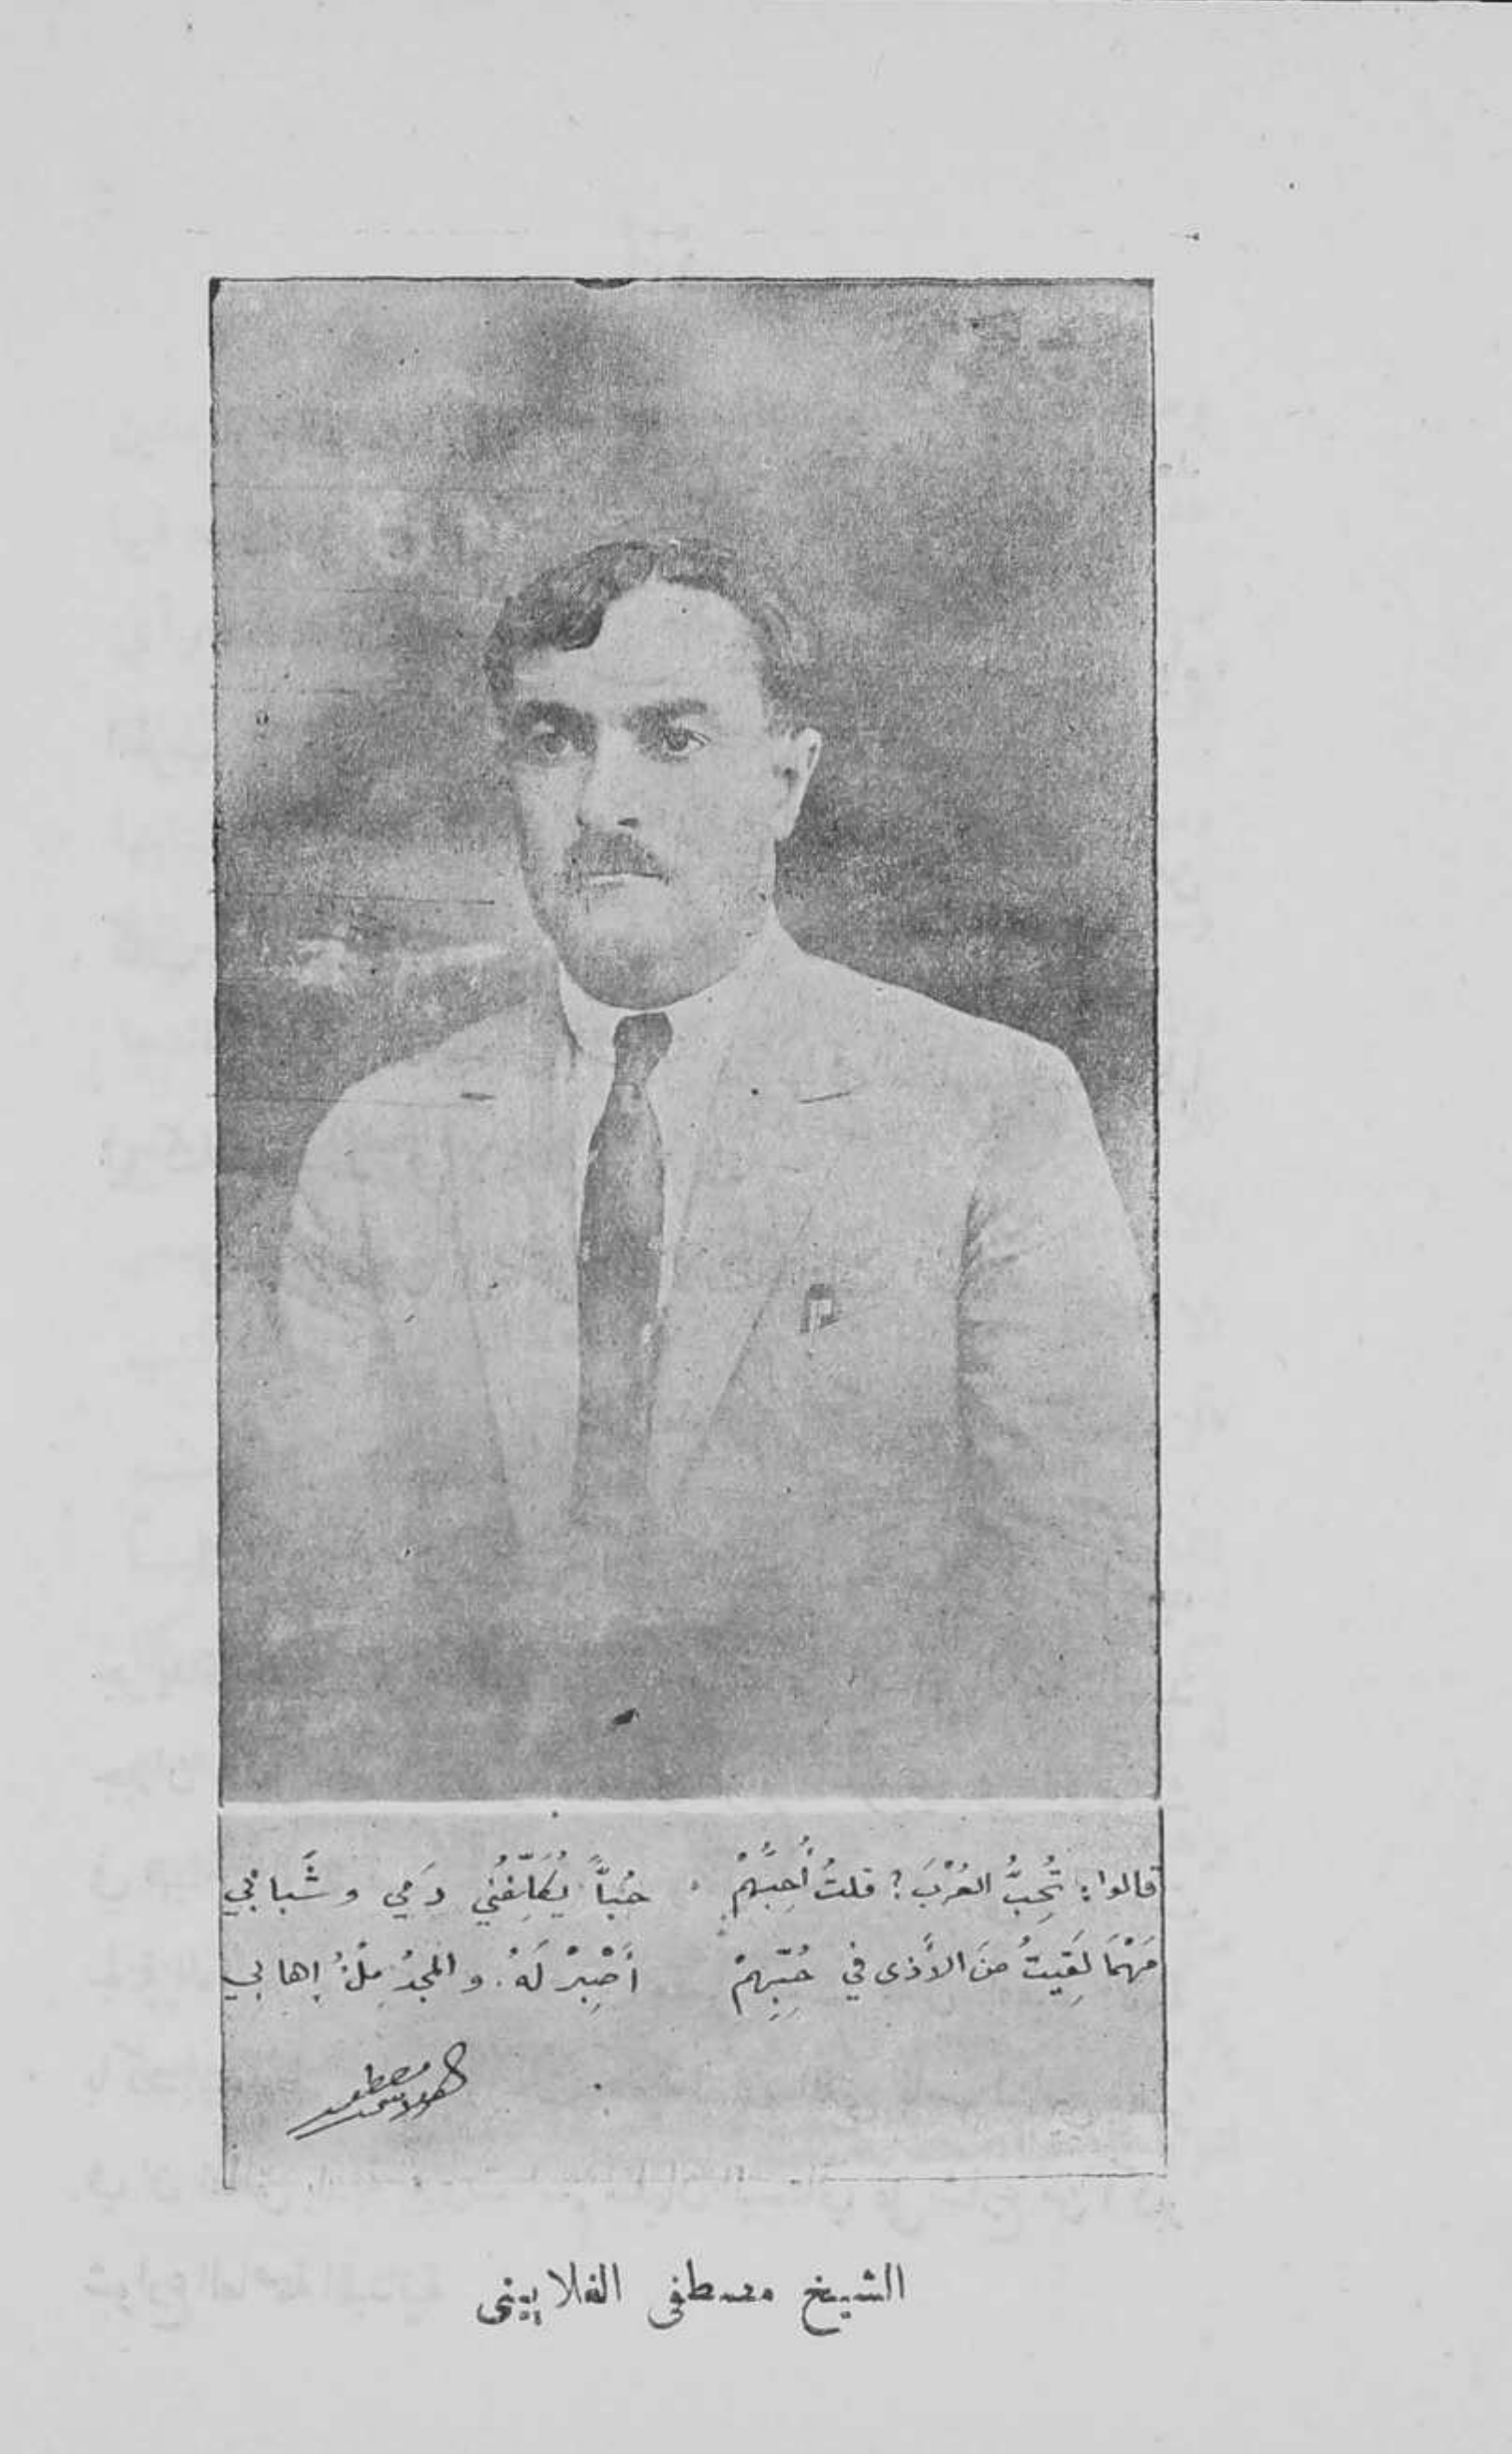 قالوا: تُحِبُّ العُرْبَ؟ قلتُ أُحِبُّهُمْ حُبّاً يُكَلِّفُنِي دَمِي وشَبابِي
مَهْمَا لَقِيتُ مِنَ الأَذى في حُبِّهِمْ أَصْبِرْ لَهُ. والمجدُ مِلْءُ إهابي
مصطفى الغلاييني
الشيخ مصطفى الغلاييني